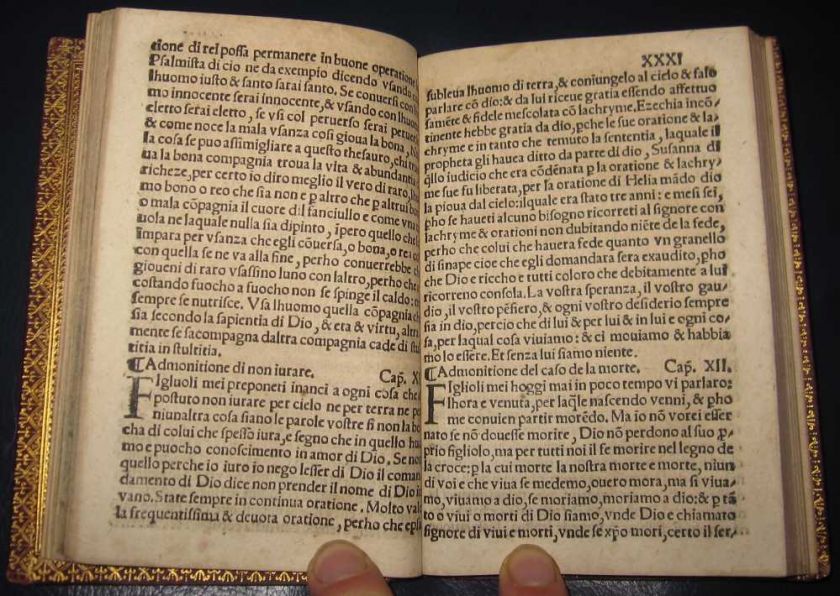 tione di rel possa permanere in buone operatione
Psalmista di cio ne da exempio dicendo vsando
lhuomo iusto & santo sarai santo. Se conuersi con
mo innocente serai innocente, & vsando con lhuom
eletto serai eletto, se vsi col peruerso serai peruer
& come noce la mala vsanza cosi gioua la bona,
la cosa se puo assimigliare a questo thesauro, chi tro
ua la bona compagnia troua la vita & abundantia
richeze, per certo io diro meglio il vero di raro, lhu
mo bono o reo che sia non e p altro che p altrui bon
o mala cōpagnia il cuore dil fanciullo e come vna
uola ne laquale nulla sia dipinto, ipero quello che
impara per vsanza che egli cōuersa, o bona, o rea
con quella se ne va alla fine, perho conuerrebbe
gioueni di raro vsassino luno con laltro, perho che
costando fuocho a fuocho non se spinge il caldo:
sempre se nutrisce. Vsa lhuomo quella cōpagnia
sia secondo la sapientia di Dio, & era & virtu, altri
mente se sacompagna daltra compagnia cade di stul
titia in stultitia.
¶Admonitione di non iurare. Cap. X
FIgluoli mei preponeti inanci a ogni cosa che
postuto non iurare per cielo ne per terra ne pe
niunaltra cosa siano le parole vostre si non la bo
cha di colui che spesso iura, e segno che in quello hu
mo e puocho conoscimento in amor di Dio. Se non
quello perche io iuro io nego lesser di Dio il coman
damento di Dio dice non prender il nome di Dio i
vano. State sempre in continua oratione. Molto val
la frequentissima & deuota oratione, perho che epsa
XXXI
subleua lhuomo di terra, & coniungelo al cielo & falo
parlare cō dio: & da lui riceue gratia essendo affettuo
samēte & fidele mescolata cō lachryme. Ezechia incō/
tinente hebbe gratia da dio, pche le sue oratione & la/
chryme e in tanto che temuto la sententia, laquale il
propheta gli hauea ditto da parte di dio, Susanna di
qllo iudicio che era cōdēnata p la oratione & lachry/
me sue fu liberata, per la oratione di Helia mādo dio
la pioua dal cielo: ilquale era stato tre anni: e mesi sei,
pho se haueti alcuno bisogno ricorreti al signore con
lachryme & orationi non dubitando niēte de la fede,
perho che colui che hauera fede quanto vn granello
di sinape cioe che egli domandara sera exaudito, pho
che Dio e riccho e tutti coloro che debitamente a lui
ricorreno consola. La vostra speranza, il vostro gau/
dio, il vostro pēsiero, & ogni vostro desiderio sempre
sia in dio, percio che di lui & per lui & in lui e ogni co/
sa, per laqual cosa viuiamo: & ci mouiamo & habbia
mo lo essere. Et senza lui siamo niente.
¶Admonitione del caso de la morte. Cap. XII.
FIglioli mei hoggi mai in poco tempo vi parlaro:
lhora e venuta, per laqle nascendo venni, & pho
me conuien partir morēdo. Ma io nō vorei esser
nato se nō douesse morire, Dio nō perdono al suo p/
prio figliolo, ma per tutti noi il fe morire nel legno de
la croce: p la cui morte la nostra morte e morte, niun
di voi e che viua se medemo, ouero mora, ma si viua/
mo, viuamo a dio, se moriamo, moriamo a dio: & p tā/
to o viui o morti di Dio siamo, vnde Dio e chiamato
signore di viui e morti, vnde se xp̄o mori, certo il ser/